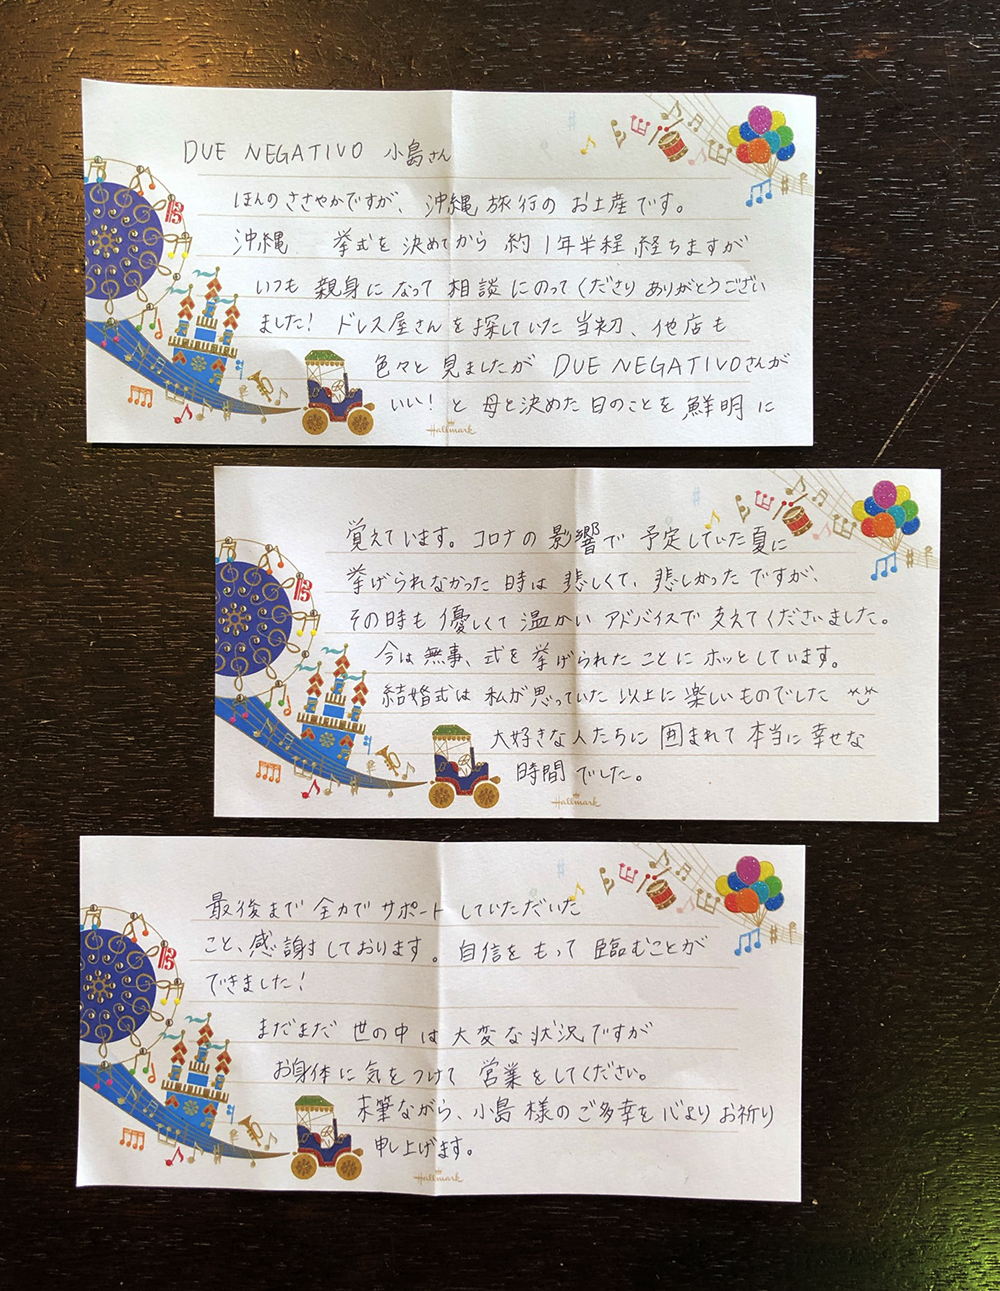 DUE NEGATIVO 小島さん
ほんのささやかですが、沖縄旅行のお土産です。
沖縄 挙式を決めてから約1年半程経ちますが
いつも親身になって相談にのってくださりありがとうござい
ました！ドレス屋さんを探していた当初、他店も
色々と見ましたがDUE NEGATIVOさんが
いい！と母と決めた日のことを鮮明に
Hallmark
覚えています。コロナの影響で予定していた夏に
挙げられなかった時は悲しくて、悲しかったですが、
その時も優しくて温かいアドバイスで支えてくださいました。
今は無事、式を挙げられたことにホッとしています。
結婚式は私が思っていた以上に楽しいものでした
大好きな人たちに囲まれて本当に幸せな
時間でした。
Hallmark
最後まで全力でサポートしていただいた
こと、感謝しております。自信をもって臨むことが
できました！
まだまだ世の中は大変な状況ですが
お身体に気をつけて営業をしてください。
末筆ながら、小島様のご多幸を心よりお祈り
申し上げます。
Hallmark